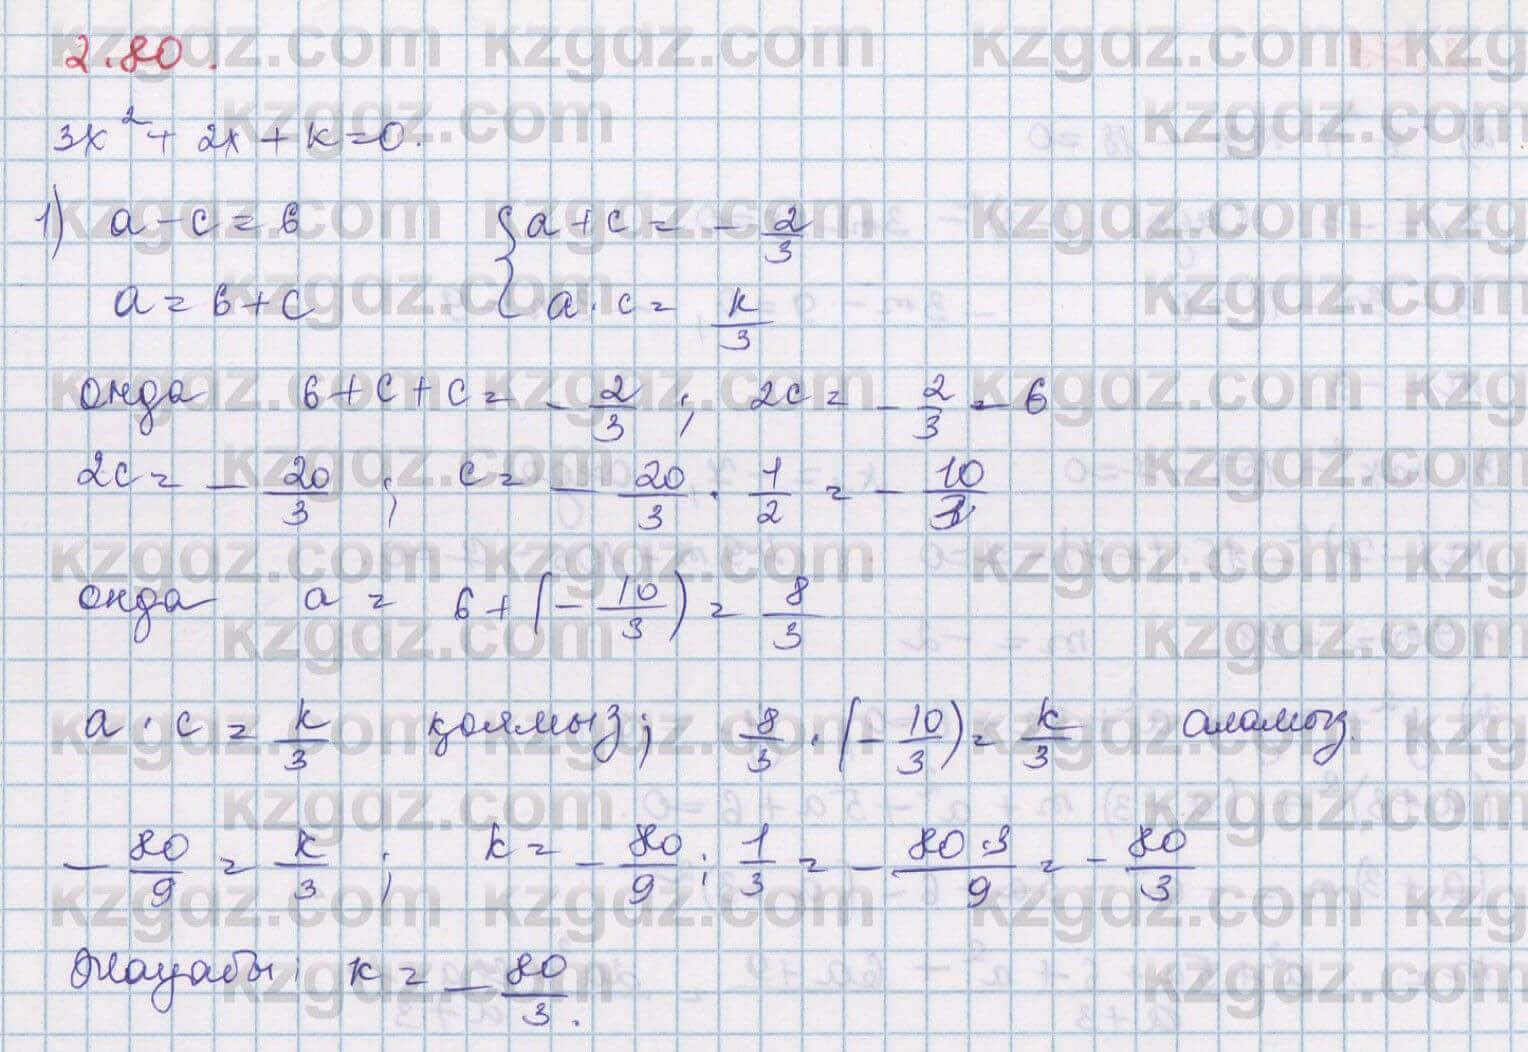 2.80.
3x² + 2x + k = 0.
1) a - c = 6 { a + c = - 2/3
a = 6 + c a · c = k/3
онда 6 + c + c = - 2/3 ; 2c = - 2/3 - 6
2c = - 20/3 ; c = - 20/3 · 1/2 = - 10/3
онда a = 6 + (- 10/3) = 8/3
a · c = k/3 қоямыз; 8/3 · (- 10/3) = k/3 аламыз.
- 80/9 = k/3 ; k = - 80/9 : 1/3 = - 80·3/9 = - 80/3
Жауабы: k = - 80/3.
kzgdz.com